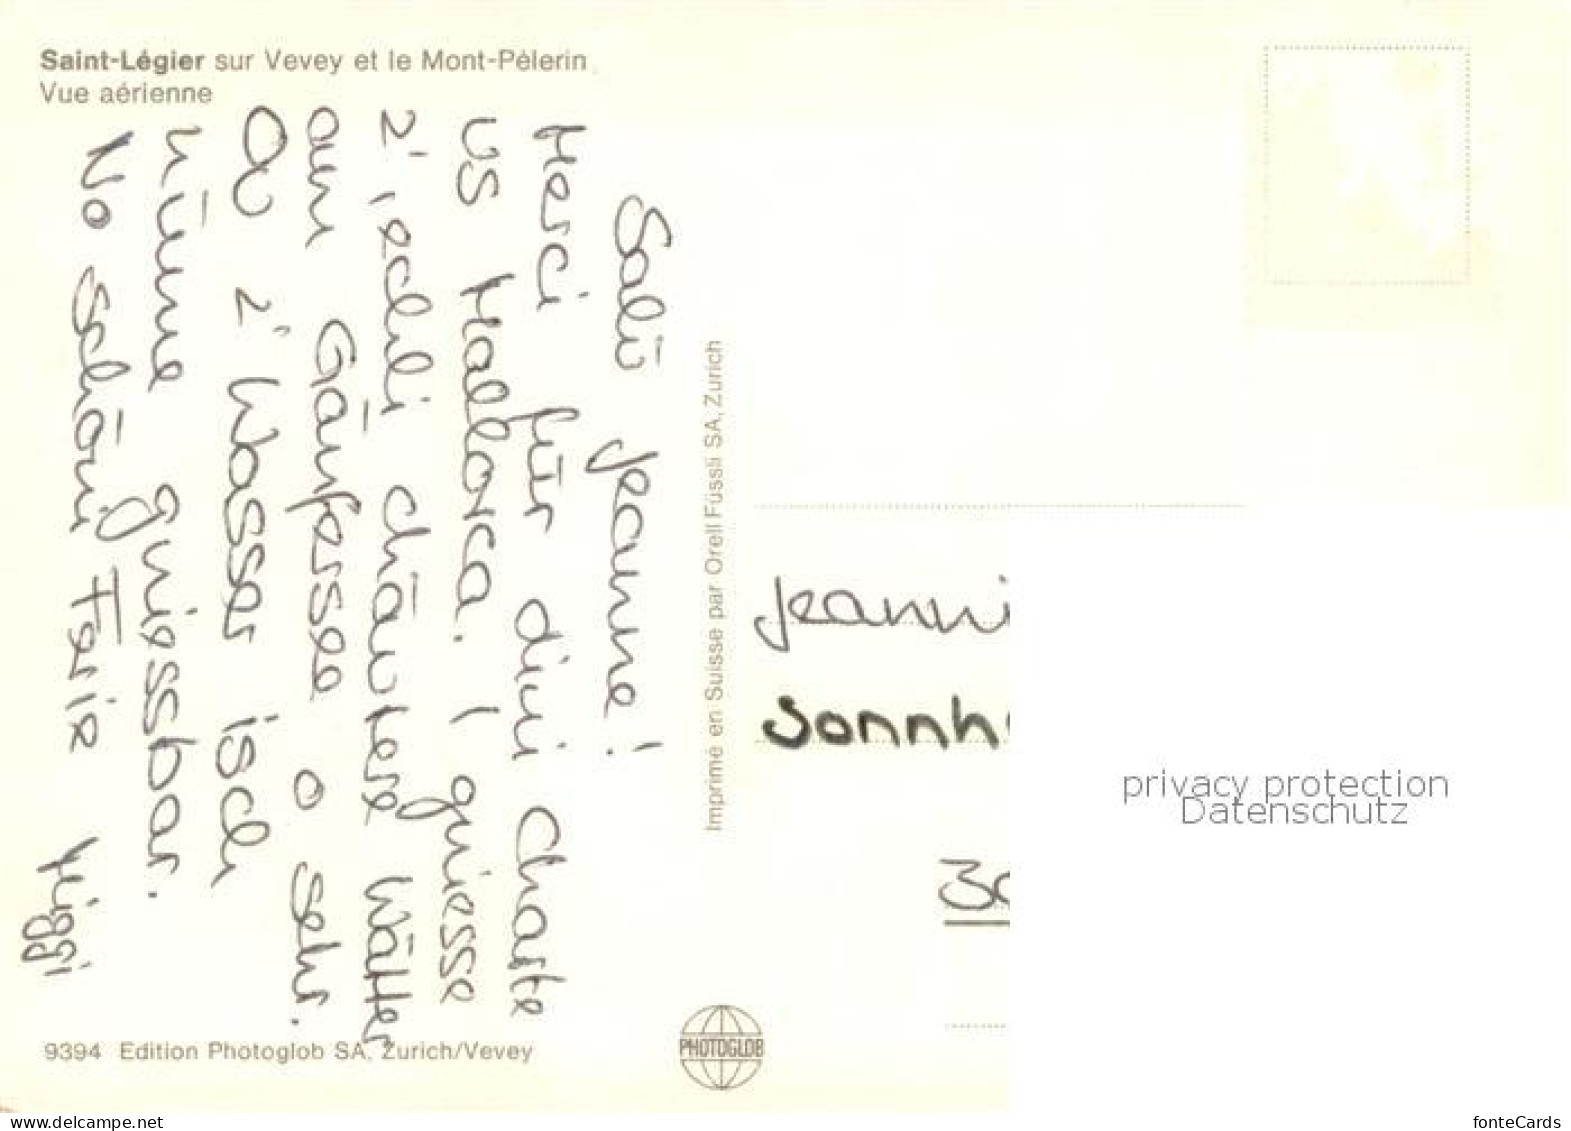 Saint-Légier sur Vevey et le Mont-Pèlerin
Vue aérienne
Salü Jeanne!
Merci für dini Charte
us Mallorca. I gniesse
z' ischli chäutere Wätter
am Gänfersee o sehr.
Ou z' Wasser isch
nümme gniessbar.
No schöni Ferie
Imprimé en Suisse par Orell Füssli SA, Zurich
Jeanni
Sonnh
30
privacy protection
Datenschutz
9394 Edition Photoglob SA, Zurich/Vevey
PHOTOGLOB
www.delcampe.net
fonteCards